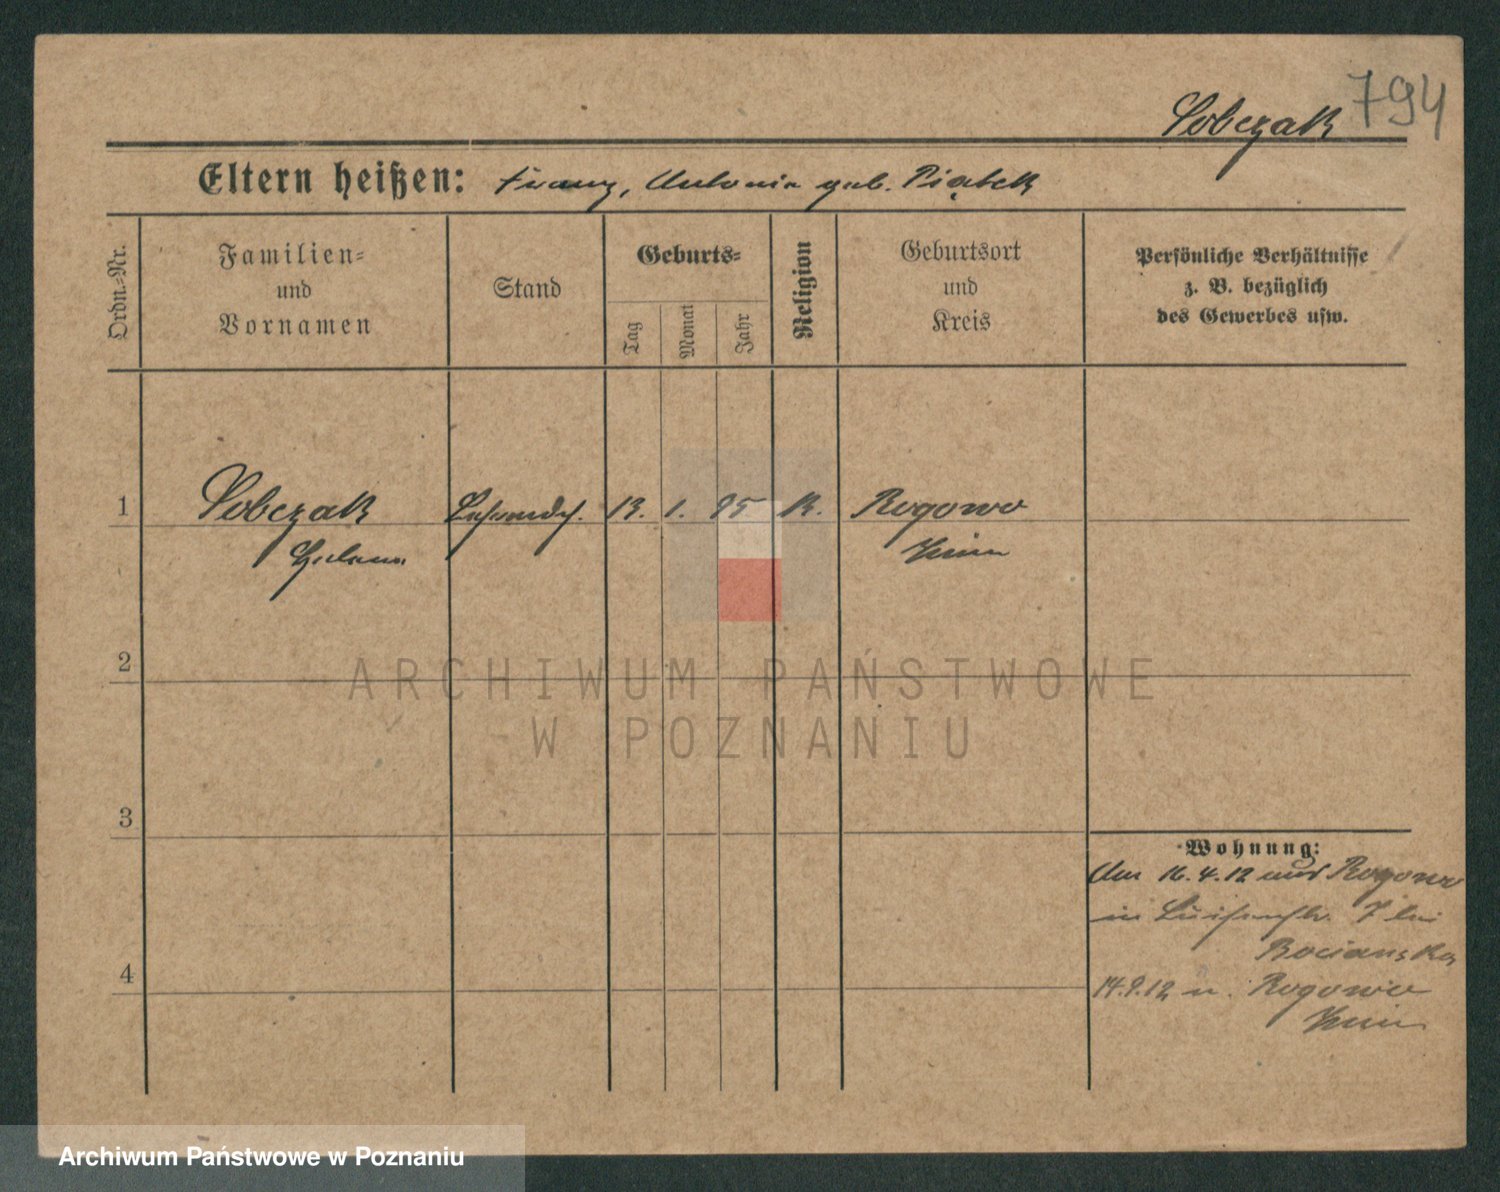 794
Sobczak
Eltern heißen: Franz, Antonie geb. Piątek
Ordn.=Nr.
Familien=
und
Vornamen
Stand
Geburts=
Tag
Monat
Jahr
Religion
Geburtsort
und
Kreis
Persönliche Verhältnisse
z. B. bezüglich
des Gewerbes usw.
1
Sobczak
13. 1. 95 K.
Rogowo
Znin
2
ARCHIWUM PAŃSTWOWE
W POZNANIU
3
4
Wohnung:
Am 16.4.12 aus Rogowo
in Luisenstr. 7 bei
Bocianska
14.9.12 n. Rogowo
Znin
Archiwum Państwowe w Poznaniu